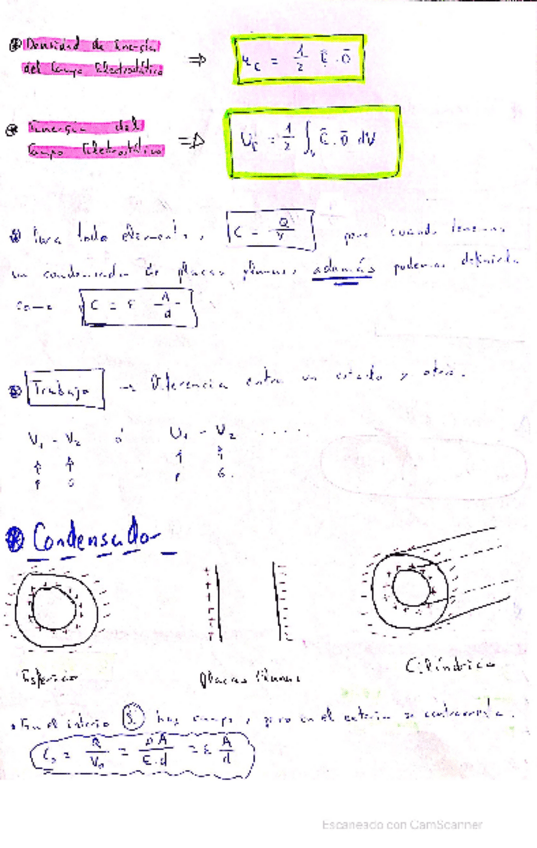 Densidad de Energía ⇒ u_E = 1/2 Ē · D̄
del Campo Electrostático
Energía del ⇒ U_E = 1/2 ∫_V Ē · D̄ dV
Campo Electrostático
Para todo elemento, C = Q/V pero cuando tenemos
un condensador de placas planas, además podemos definirla
como C = ε A/d
Trabajo → Diferencia entre un estado y otro.
V₁ - V₂ ó U₁ - U₂ .....
Condensador
Esférico Placas Planas Cilíndrico
• En el interior sí hay campo, pero en el exterior se contrarresta.
C₀ = Q/V₀ = DA/E·d = ε A/d
Escaneado con CamScanner